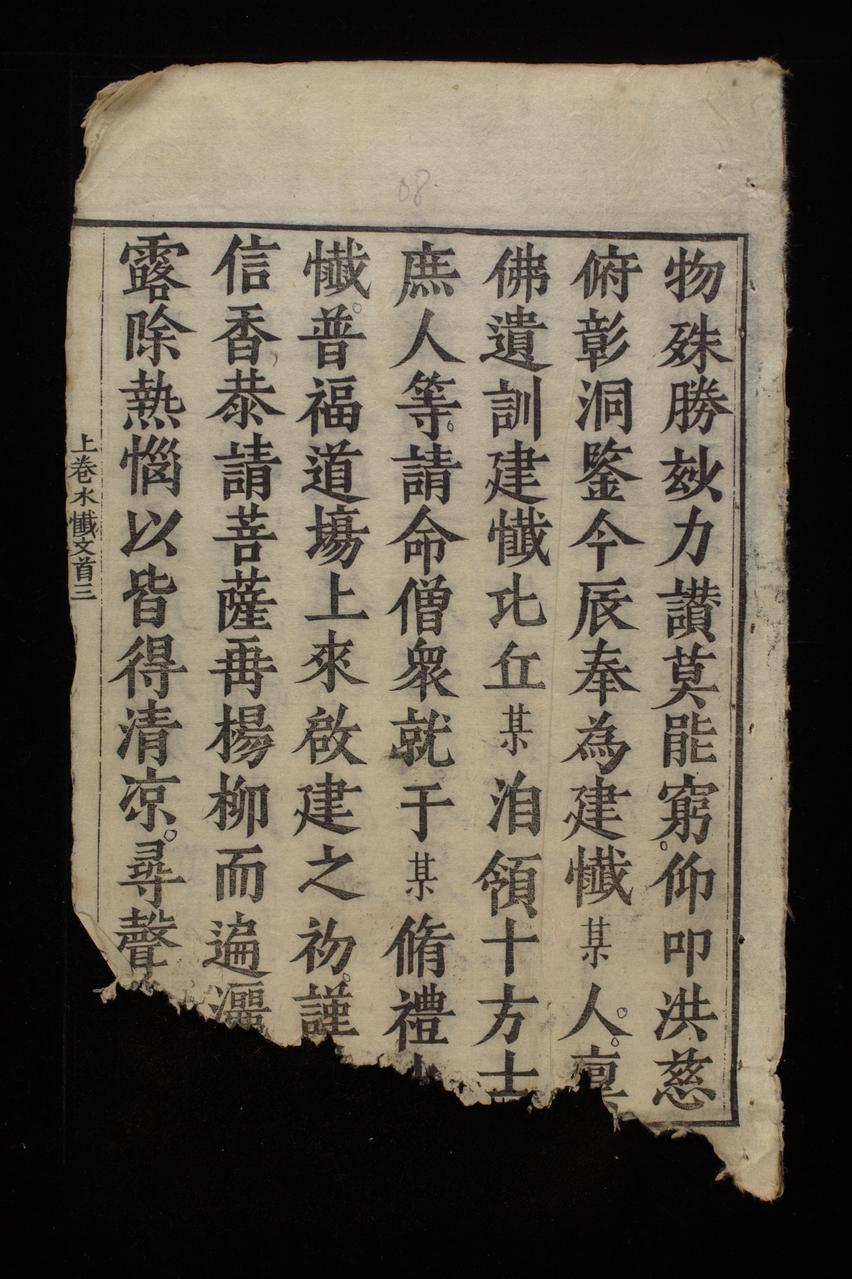 物殊勝玅力讃莫能窮仰叩洪慈
俯彰洞鑒今辰奉為建懺某人稟
佛遺訓建懺比丘某洎領十方士
庶人等請命僧眾就于某脩禮
懺普福道塲上來啟建之初謹
信香恭請菩薩再楊柳而遍灑
露除熱惱以皆得清凉尋聲
上卷水懺文首三
08